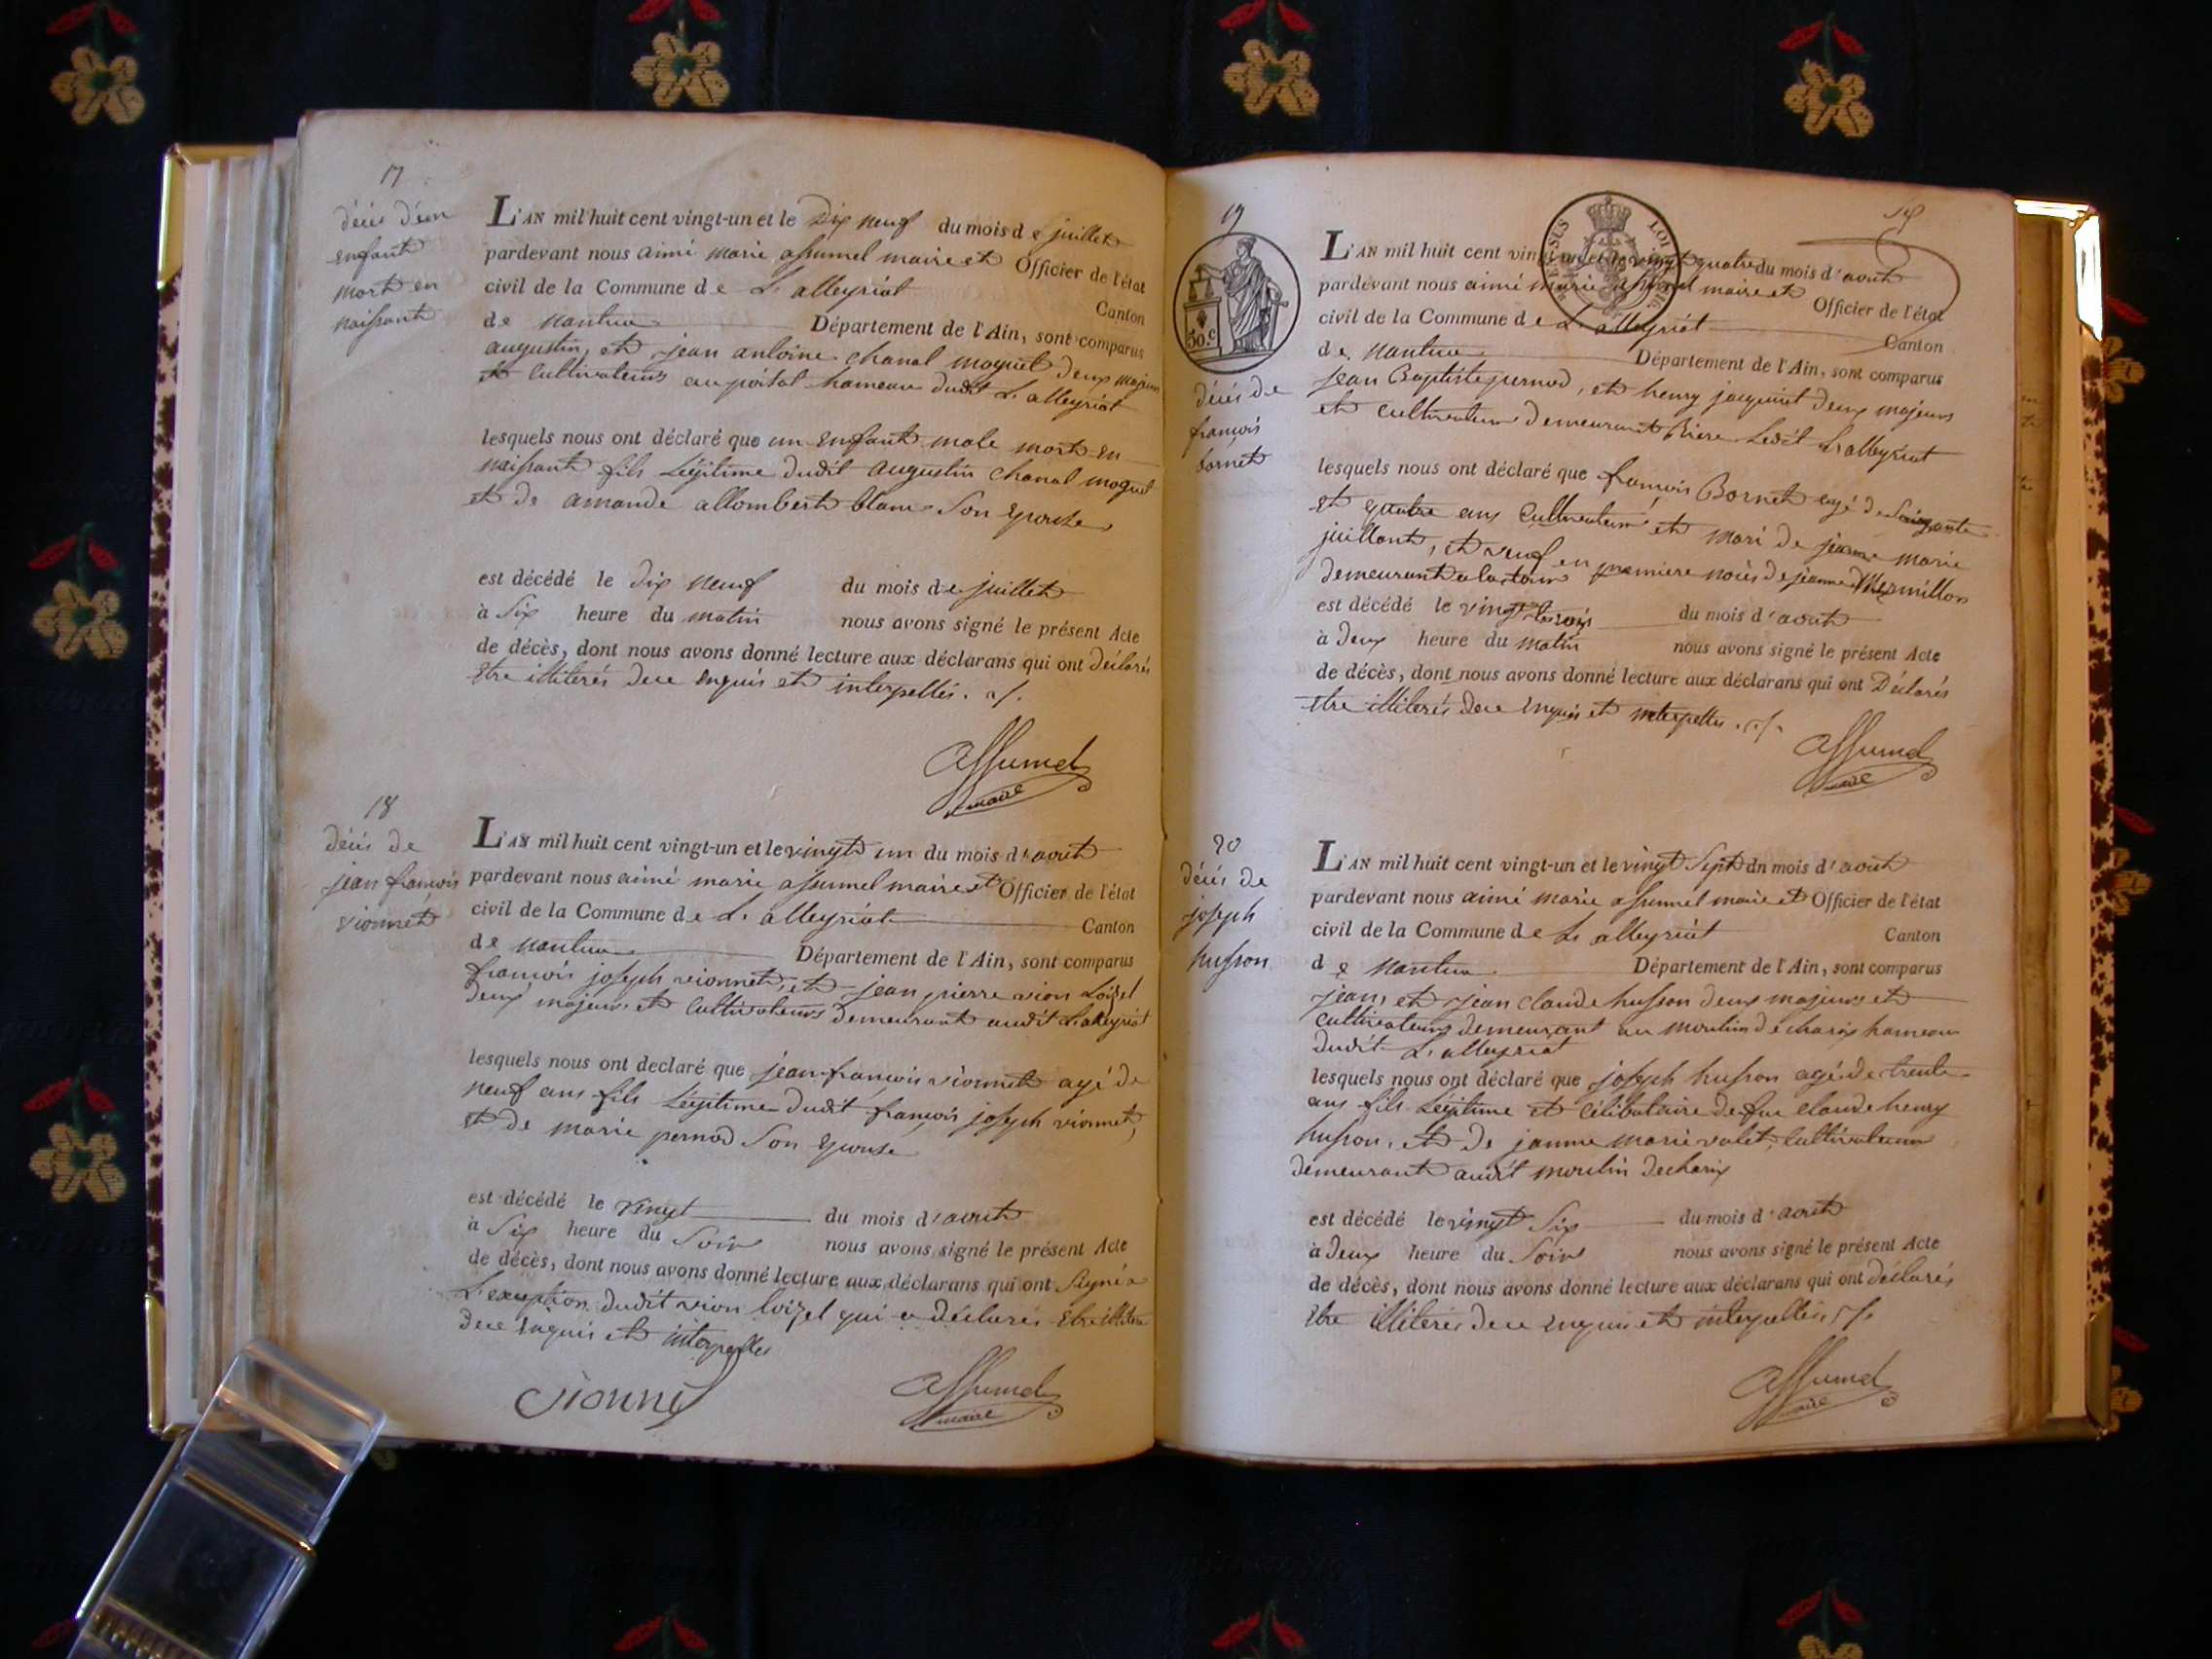 17
décès d'un
enfant
mort en
naissant
L'AN mil huit cent vingt-un et le Dix neuf du mois de juillet
pardevant nous aimé marie assumel maire et Officier de l'état
civil de la Commune de L'alleyriat Canton
de nantua Département de l'Ain, sont comparus
augustin, et jean antoine chanal moguet deux majeurs
et cultivateurs au poisat hameau dudit L'alleyriat
lesquels nous ont déclaré que un enfant male mort en
naissant fils Légitime dudit augustin chanal moguet
et de amande allombert blanc Son epouse
est décédé le dix neuf du mois de juillet
à Six heure du matin nous avons signé le présent Acte
de décès, dont nous avons donné lecture aux déclarans qui ont déclarés
Etre illiterés de ce enquis et interpellés. ./.
assumel
maire
18
décès de
jean françois
vionnet
L'AN mil huit cent vingt-un et le vingt un du mois d'aout
pardevant nous aimé marie assumel maire et Officier de l'état
civil de la Commune de L'alleyriat Canton
de nantua Département de l'Ain, sont comparus
françois joseph vionnet, et jean pierre vion Loizel
deux majeurs et cultivateurs demeurant audit L'alleyriat
lesquels nous ont declaré que jean françois vionnet agé de
neuf ans fils Légitime dudit françois joseph vionnet,
et de marie pernod Son epouse
est décédé le vingt du mois d'aout
à Six heure du Soir nous avons signé le présent Acte
de décès, dont nous avons donné lecture aux déclarans qui ont Signé a
L'exeption dudit vion loizel qui a déclaré Etre illitere
de ce enquis et interpelles
vionnet
assumel
maire
19
50.c
décès de
françois
bornet
L'AN mil huit cent vingt-un et le vingt quatre du mois d'aout
pardevant nous aimé marie assumel maire et Officier de l'état
civil de la Commune de L'alleyriat Canton
de nantua Département de l'Ain, sont comparus
jean Baptiste pernod, et henry jacquinet deux majeurs
et cultivateurs demeurant Rière Ledit L'alleyriat
lesquels nous ont déclaré que françois Bornet agé de Soixante
et quatre ans cultivateur et mari de jeanne marie
juillard, et veuf en premiere noces de jeanne
demeurant a la
est décédé le vingt trois du mois d'aout
à deux heure du matin nous avons signé le présent Acte
de décès, dont nous avons donné lecture aux déclarans qui ont Déclarés
etre illiterés de ce enquis et interpelles ./.
assumel
maire
20
décès de
joseph
husson
L'AN mil huit cent vingt-un et le vingt Sept du mois d'aout
pardevant nous aimé marie assumel maire et Officier de l'état
civil de la Commune de L'alleyriat Canton
de nantua Département de l'Ain, sont comparus
jean, et jean claude husson deux majeurs et
cultivateurs demeurant au moulin de charix hameau
dudit L'alleyriat
lesquels nous ont déclaré que joseph husson agé de trente
ans fils Légitime et célibataire de feu claude henry
husson, et de jeanne marie valet, cultivateur
demeurant audit moulin de charix
est décédé le vingt Six du mois d'aout
à deux heure du Soir nous avons signé le présent Acte
de décès, dont nous avons donné lecture aux déclarans qui ont déclarés
Etre illiterés de ce enquis et interpellés ./.
assumel
maire